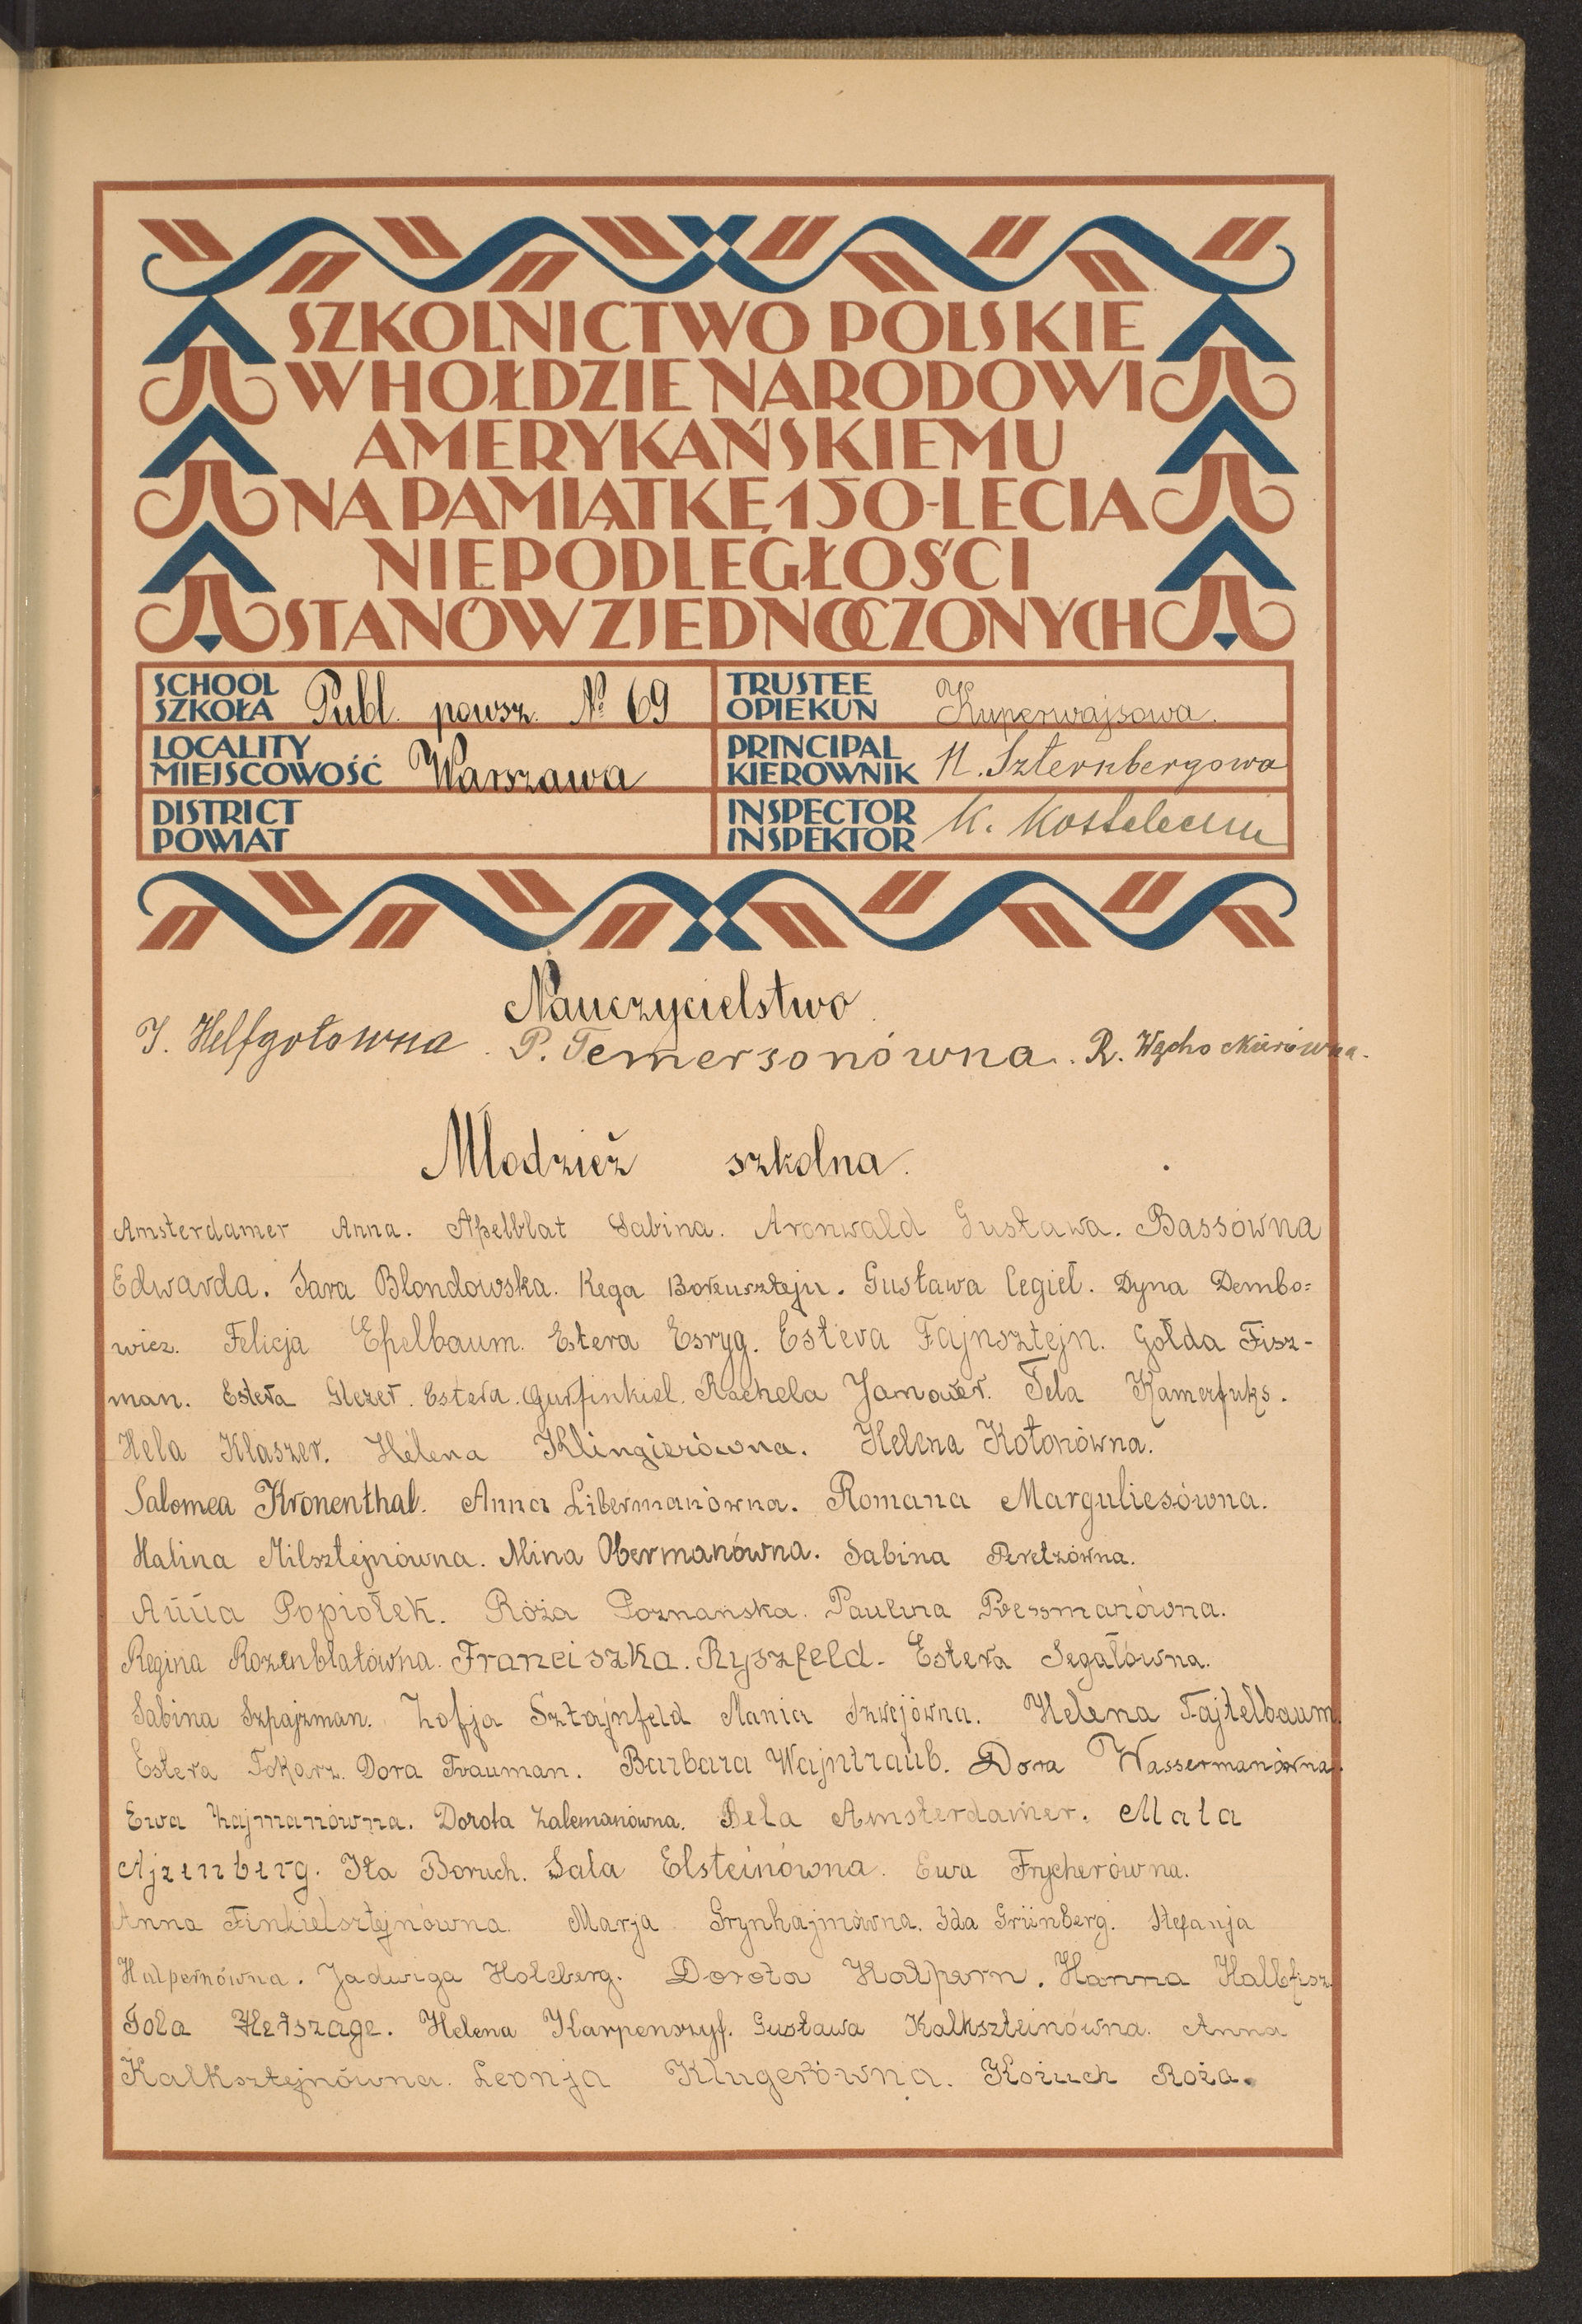 SZKOLNICTWO POLSKIE
W HOŁDZIE NARODOWI
AMERYKAŃSKIEMU
NA PAMIĄTKĘ 150-LECIA
NIEPODLEGŁOŚCI
STANÓW ZJEDNOCZONYCH
SCHOOL
SZKOŁA Publ. powsz. № 69
TRUSTEE
OPIEKUN Kuperwajsowa.
LOCALITY
MIEJSCOWOŚĆ Warszawa
PRINCIPAL
KIEROWNIK N. Szternbergowa
DISTRICT
POWIAT
INSPECTOR
INSPEKTOR K.
Nauczycielstwo.
J. Helfgotowna. P. Temersonówna. R.
Młodzież szkolna.
Amsterdamer Anna. Apelblat Sabina. Aronwald Gustawa. Bassówna
Edwarda. Sara Blondowska. Rega Borensztejn. Gustawa Cegieł. Dyna Dembo=
wicz. Felicja Epelbaum. Estera Esryg. Estera Fajnsztejn. Gołda Fisz-
man. Estera Glezer. Estera Gurfinkiel. Rachela Janower. Tela Kamerfuks.
Hela Klaszer. Helena Klingierówna. Helena Kotonówna.
Salomea Kronenthal. Anna Libermanówna. Romana Marguliesówna.
Halina Milsztejnówna. Mina Obermanówna. Sabina Peretzówna.
Anna Popiołek. Róża Poznańska. Paulina Pressmanówna.
Regina Rozenblatówna. Franciszka Ryszfeld. Estera Segałówna.
Sabina Szpajzman. Zofja Sztajnfeld Mania Szwejówna. Helena Tajtelbaum.
Estera Tokarz. Dora Trauman. Barbara Wajntraub. Dora Wassermanówna.
Ewa Zajmanówna. Dorota Zalemanówna. Bela Amsterdamer. Mala
Ajzenberg. Ita Boruch. Sala Elsteinówna. Ewa Frycherówna.
Anna Finkielsztejnówna. Marja Grynhajmówna. Ida Grünberg. Stefanja
Halpernówna. Jadwiga Holcberg. Dorota Halpern. Hanna Halbfisz
Tola Herszage. Helena Karpenszyf. Gustawa Kalkszteinówna. Anna
Kalksztejnówna. Leonja Klugerówna. Kożuch Róża.